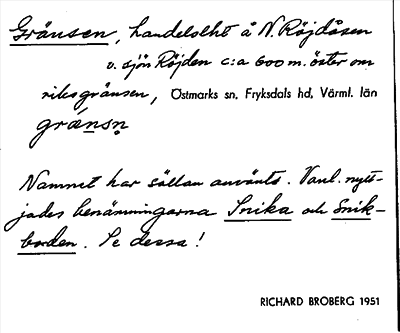 Gränsen, handelsställe å N. Röjdåsen
v. sjön Röjden c:a 600 m. öster om
riksgränsen, Östmarks sn, Fryksdals hd, Värml. län
grä́nsn̥
Namnet har sällan använts. Vanl. nytt-
jades benämningarna Snika och Snik-
boden. Se dessa!
RICHARD BROBERG 1951